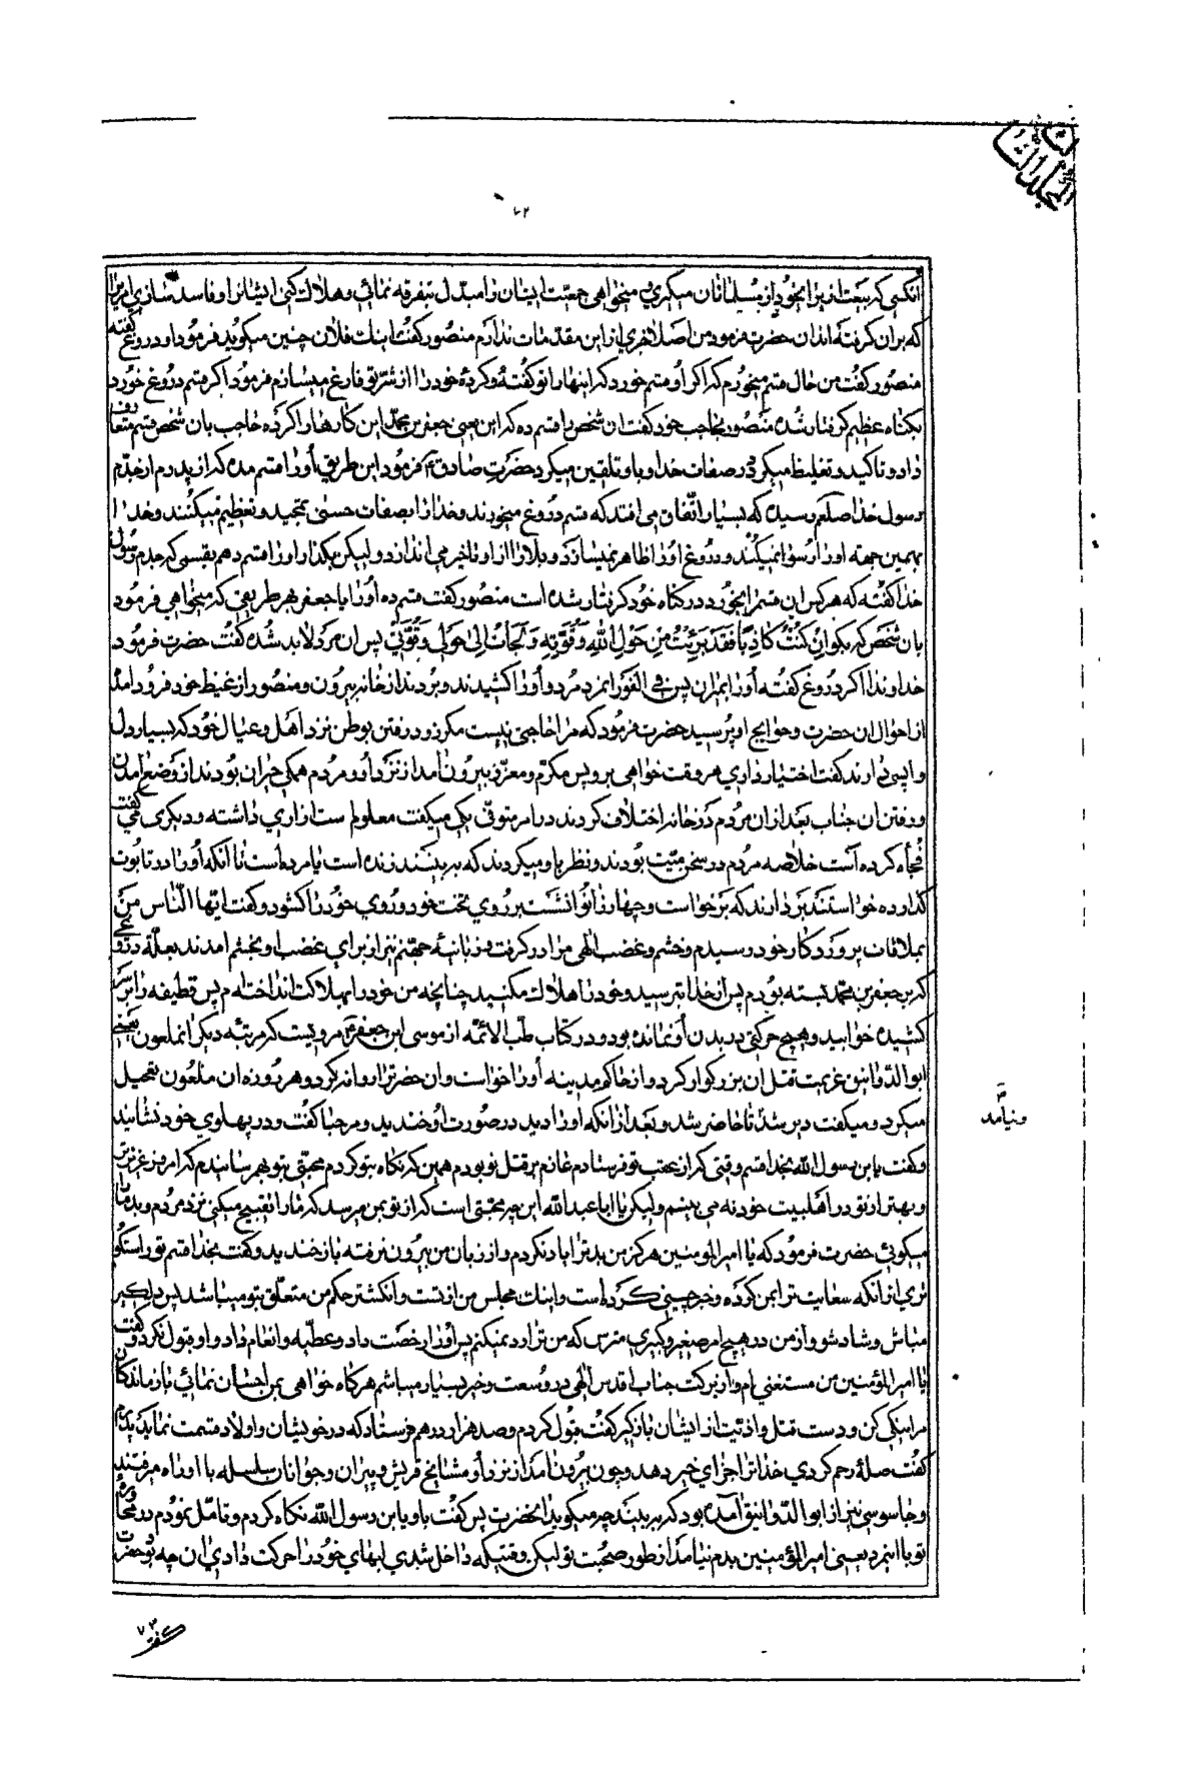 المجلد الثالث
۷۲
انکسی که بیعت از برای خود از مسلمانان میگیری میخواهی جمعیت ایشان را مبدل بتفرقه نمائی و هلاک کنی ایشانرا و فاسد سازی امریرا
که بران گرفته اند ان حضرت فرمود من اصلا خبری از این مقدمات ندارم منصور گفت اینک فلان چنین میگوید فرمود او دروغ گفته
منصور گفت من حال قسم میخورم که اگر او قسم خورد که اینهارا تو گفتهٔ و کردهٔ خود را از شر تو فارغ میسازم فرمود اگر قسم دروغ خورد
بگناه عظیم گرفتار شده منصور بحاجب خود گفت ان شخص را قسم ده که این یعنی جعفر بن محمد این کارها را کرده حاجب بان شخص قسم متعارف
داد و تاکید و تغلیظ میکرد در صفات خدا و باو تلقین میکرد حضرت صادق ع فرمود این طریق او را قسم مده که از پدرم از جدم
رسول خدا صلعم رسیده که بسیار اتفاق می افتد که قسم دروغ میخورند و خدا را بصفات حسنی تمجید و تعظیم میکنند و خدا
بهمین جهة او را رسوا نمیکند و دروغ او را ظاهر نمیسازد و بلا را از او تاخیر می اندازد و لیکن بگذار او را قسم دهم بقسمی که جدم رسول
خدا گفته که هر کس ان قسم را بخورد در گناه خود گرفتار شده است منصور گفت قسم ده او را یا جعفر بهر طریقی که میخواهی فرمود
بان شخص که بگو ان کنت کاذبا فقد برئت من حول الله و قوته و لجات الی حولی و قوتی پس ان مرد لابد شده گفت حضرت فرمود
خداوندا اگر دروغ گفته او را بمیران پس فی الفور انمرد مرد و او را کشیدند و بردند از خانه بیرون و منصور از غیظ خود فرود امد
از احوال ان حضرت و حوایج او پرسید حضرت فرمود که مرا حاجتی نیست مگر زود رفتن بوطن نزد اهل و عیال خود که بسیار دل
واپسی دارند گفت اختیار داری هر وقت خواهی برو پس مکرم و معزز بیرون امد از نزد او و مردم همگی حیران بودند از وضع امدن
و رفتن ان جناب بعد از ان مردم در خانه اختلاف کردند در امر متوفی یکی میگفت معلوم ست ازاری داشته و دیگری می گفت
فجأه کرده است خلاصه مردم در سخن میت بودند و نظر باو میکردند که ببینند زنده است یا مرده است تا آنکه او را در تابوت
گذارده خواستند بردارند که برخواست و چهار زانو نشست بر روی تخت خود و روی خود را گشود و گفت ایها الناس من
بملاقات پروردگار خود رسیدم و خشم و غضب الهی مرا در گرفت و زبانیهٔ جهنم نیز از برای غضب او بخشم امدند بعلة دروغی
که بر جعفر بن محمد بسته بودم پس از خدا بترسید و خود را هلاک مکنید چنانچه من خود را بهلاکت انداخته ام پس قطیفه را بر سر
کشیده خوابید و هیچ حرکتی در بدن او نمانده بود و در کتاب طب الائمه از موسی ابن جعفر ع مرویست که مرتبه دیگر انملعون یعنی
ابو الدوانیق عزیمت قتل ان بزرگوار کرد و از حاکم مدینه او را خواست و ان حضرترا روانه کرد و هر روزه ان ملعون تعجیل
میکرد و میگفت دیر شد تا حاضر شد و بعد از آنکه او را دید در صورت او خندید و مرحبا گفت و در پهلوی خود نشانید
و گفت یا بن رسول الله بخدا قسم وقتی که از عقب تو فرستادم عازم بر قتل تو بودم همین که نگاه بتو کردم محبتی بتو بهم رسانیدم که امروز عزیزتر
و بهتر از تو در اهلبیت خود نه می بینم و لیکن یا ابا عبد الله این چه محبتی است که از تو بمن میرسد که مارا تقبیح میکنی نزد مردم و بد ما را
میگوئی حضرت فرمود که یا امیر المؤمنین هرگز من بد ترا یاد نکردم و از زبان من بیرون نرفته باز خندید و گفت بخدا قسم تو راستگو
تری از آنکه سعایت ترا بمن کرده و خبرچینی کرده است و اینک مجلس من از تست و انگشتر حکم من متعلق بتو میباشد پس دلگیر
مباش و شاد شو و از من در هیچ امر صغیر و کبیری مترس که من ترا رد نمیکنم پس او را رخصت داد و عطیه و انعام داد و او قبول نکرد و گفت
یا امیر المؤمنین من مستغنی ام و از برکت جناب اقدس الهی در وسعت و خیر بسیار میباشم هرگاه خواهی بمن احسان نمائی بازماندگان
مرا نیکی کن و دست قتل و اذیت از ایشان بازگیر گفت قبول کردم و صد هزار درهم فرستاد که در خویشان و اولاد قسمت نماید پدرم
گفت صلهٔ رحم کردی خدا ترا جزای خیر دهد و چون بیرون امد از نزد او مشایخ قریش و پیران و جوانان سلسله با او راه میرفتند
و جاسوسی نیز از ابو الدوانیق آمده بود که ببیند چه میگوید انحضرت پس گفت باو یا بن رسول الله نگاه کردم و تامل نمودم در محاوره
تو با اینمرد یعنی امیر المؤمنین بدم نیامد از طور صحبت تو لیکن وقتیکه داخل شدی لبهای خود را حرکت دادی ان چه بود حضرت
و نیامد
گفت ۷۳